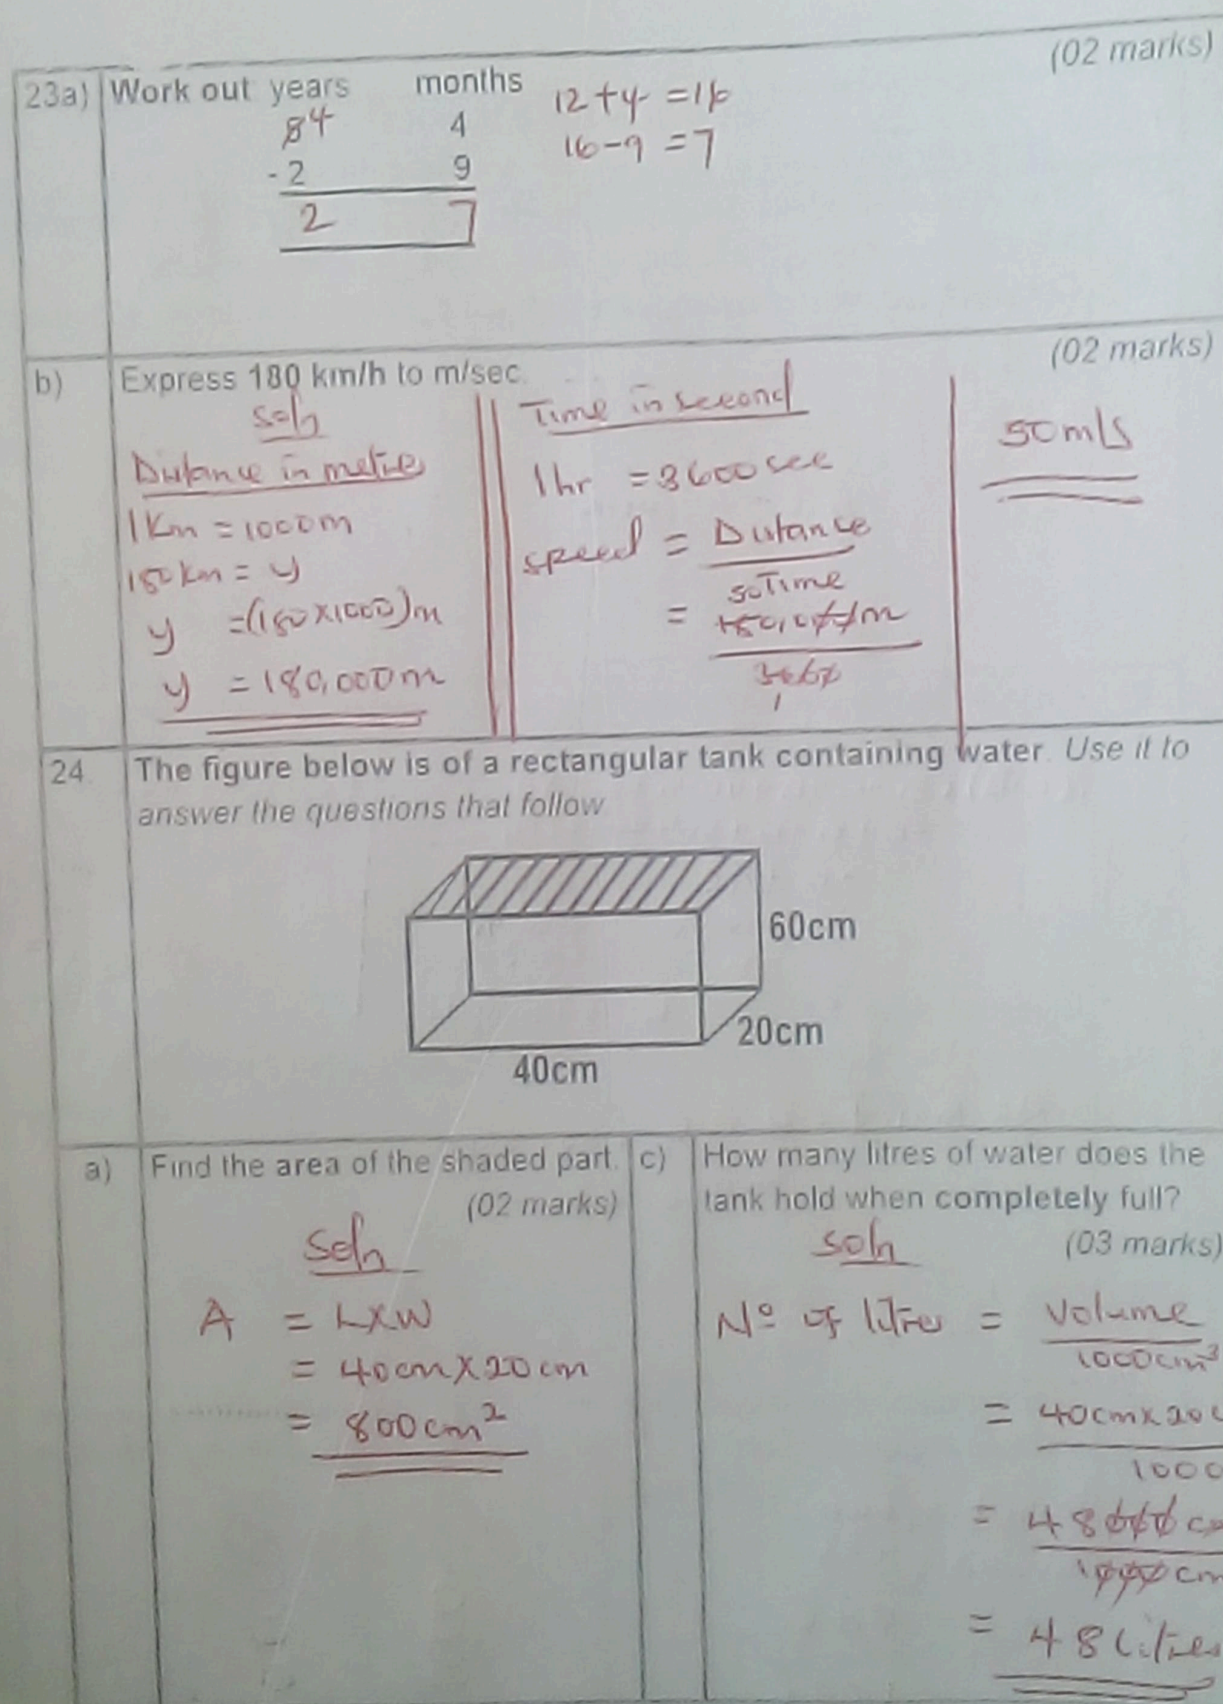 (02 marks)
23a) Work out years months
84 4
- 2 9
2 7
12+4 =16
16-9 =7
b) Express 180 km/h to m/sec. (02 marks)
Soln
Distance in metre
1Km = 1000m
180km = y
y =(180x1000)m
y = 180,000m
Time in second
1hr = 3600sec
speed = Distance
Time
50
= 180,000m
3600
1
50m/s
24. The figure below is of a rectangular tank containing water. Use it to
answer the questions that follow
60cm
20cm
40cm
a) Find the area of the shaded part.
(02 marks)
Soln
A = LXW
= 40cm X 20cm
= 800cm²
c) How many litres of water does the
tank hold when completely full?
(03 marks)
soln
Nº of litres = Volume
1000cm³
= 40cmx20c
1000
= 48000c
1000cm
= 48 Litres